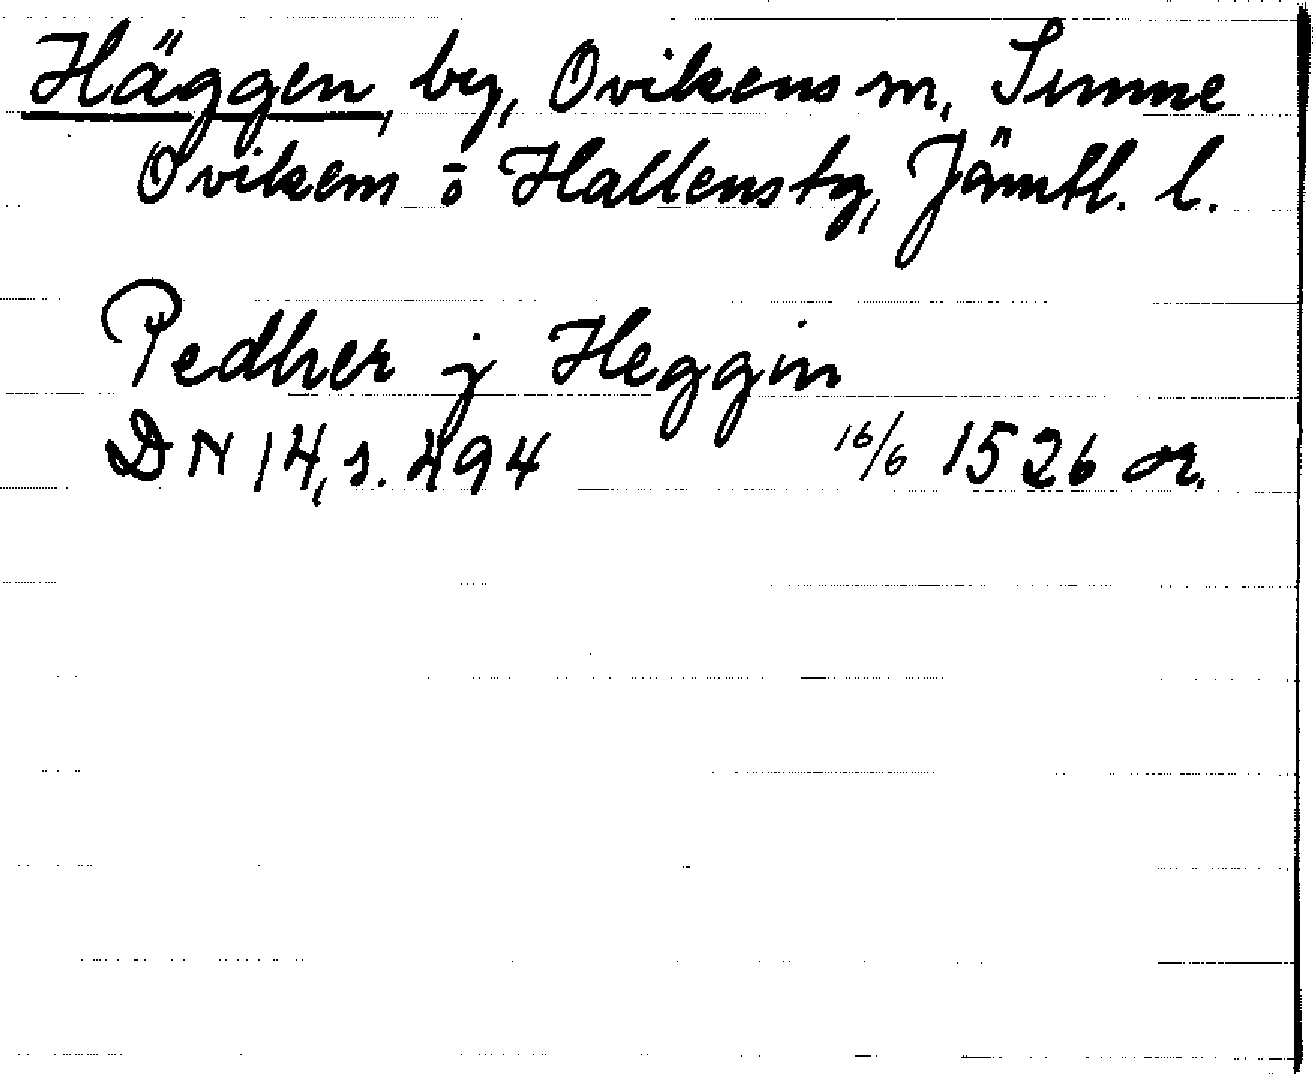 Häggen, by, Ovikens sn, Sunne
Oviken o Hallens tg, Jämtl. l.
Pedher j Heggin
DN 14, s. 494 16/6 1526 or.